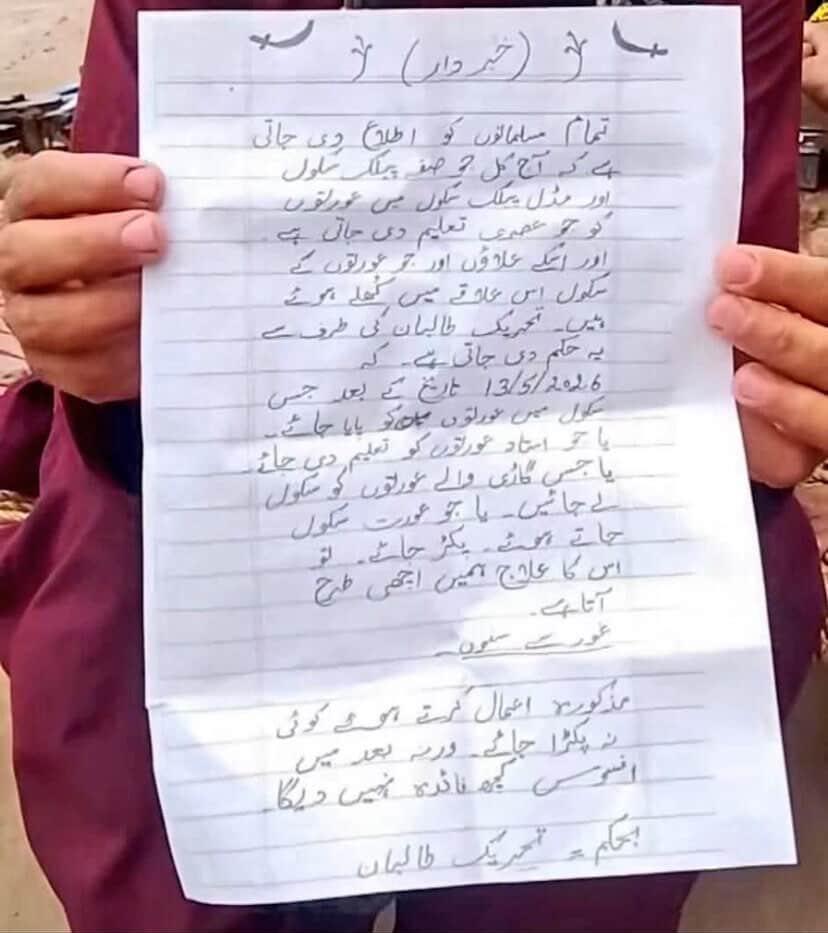 (خبر دار)
تمام مسلمانوں کو اطلاع دی جاتی
ہے کہ آج کل جو صفہ پبلک سکول
اور مڈل پبلک سکول میں عورتوں
کو جو عصری تعلیم دی جاتی ہے۔
اور اسکے علاؤں اور جو عورتوں کے
سکول اس علاقے میں کُھلے ہوئے
ہیں۔ تحریک طالبان کی طرف سے
یہ حکم دی جاتی ہے۔ کہ
13/5/2026 تاریخ کے بعد جس
سکول میں عورتوں کو پایا جائے۔
یا جو استاد عورتوں کو تعلیم دی جائے۔
یا جس گاڑی والے عورتوں کو سکول
لے جائیں۔ یا جو عورت سکول
جاتے ہوئے۔ پکڑ جائے۔ تو
اس کا علاج ہمیں اچھی طرح
آتا ہے۔
غور سے سنوں۔
مذکورہ اعمال کرتے ہوئے کوئی
نہ پکڑا جائے۔ ورنہ بعد میں
افسوس کچھ فائدہ نہیں دیگا۔
بحکم = تحریک طالبان